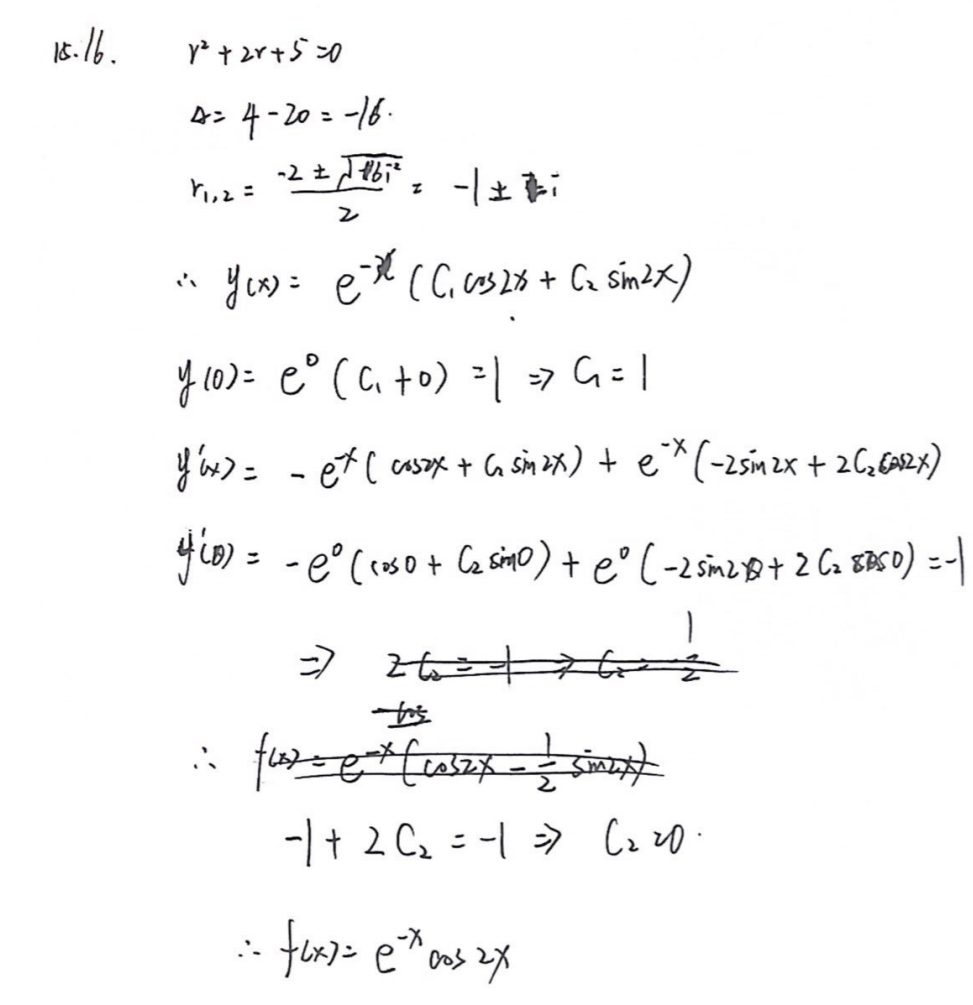 15.16. r² + 2r + 5 = 0
Δ = 4 - 20 = -16.
r₁,₂ = (-2 ± √(16i²))/2 = -1 ± i
∴ y(x) = e^(-x) (C₁ cos2x + C₂ sin2x)
y(0) = e⁰ (C₁ + 0) = 1 ⇒ C₁ = 1
y'(x) = -e^(-x) ( cos2x + C₂ sin2x) + e^(-x) (-2sin2x + 2C₂ cos2x)
y'(0) = -e⁰ (cos0 + C₂ sin0) + e⁰ (-2sin20 + 2C₂ cos0) = -1
⇒ 2C₂ = -1 ⇒ C₂ = 1/2
-cos
∴ f(x) = e^(-x) (cos2x - 1/2 sin2x)
-1 + 2C₂ = -1 ⇒ C₂ = 0.
∴ f(x) = e^(-x) cos 2x